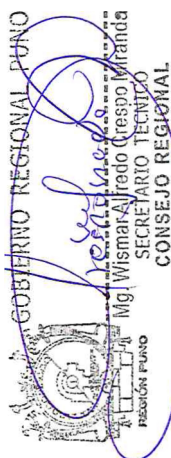 GOBIERNO REGIONAL PUNO
Mg. Wismar Alfredo Crespo Miranda
SECRETARIO TECNICO
CONSEJO REGIONAL
REGIÓN PUNO